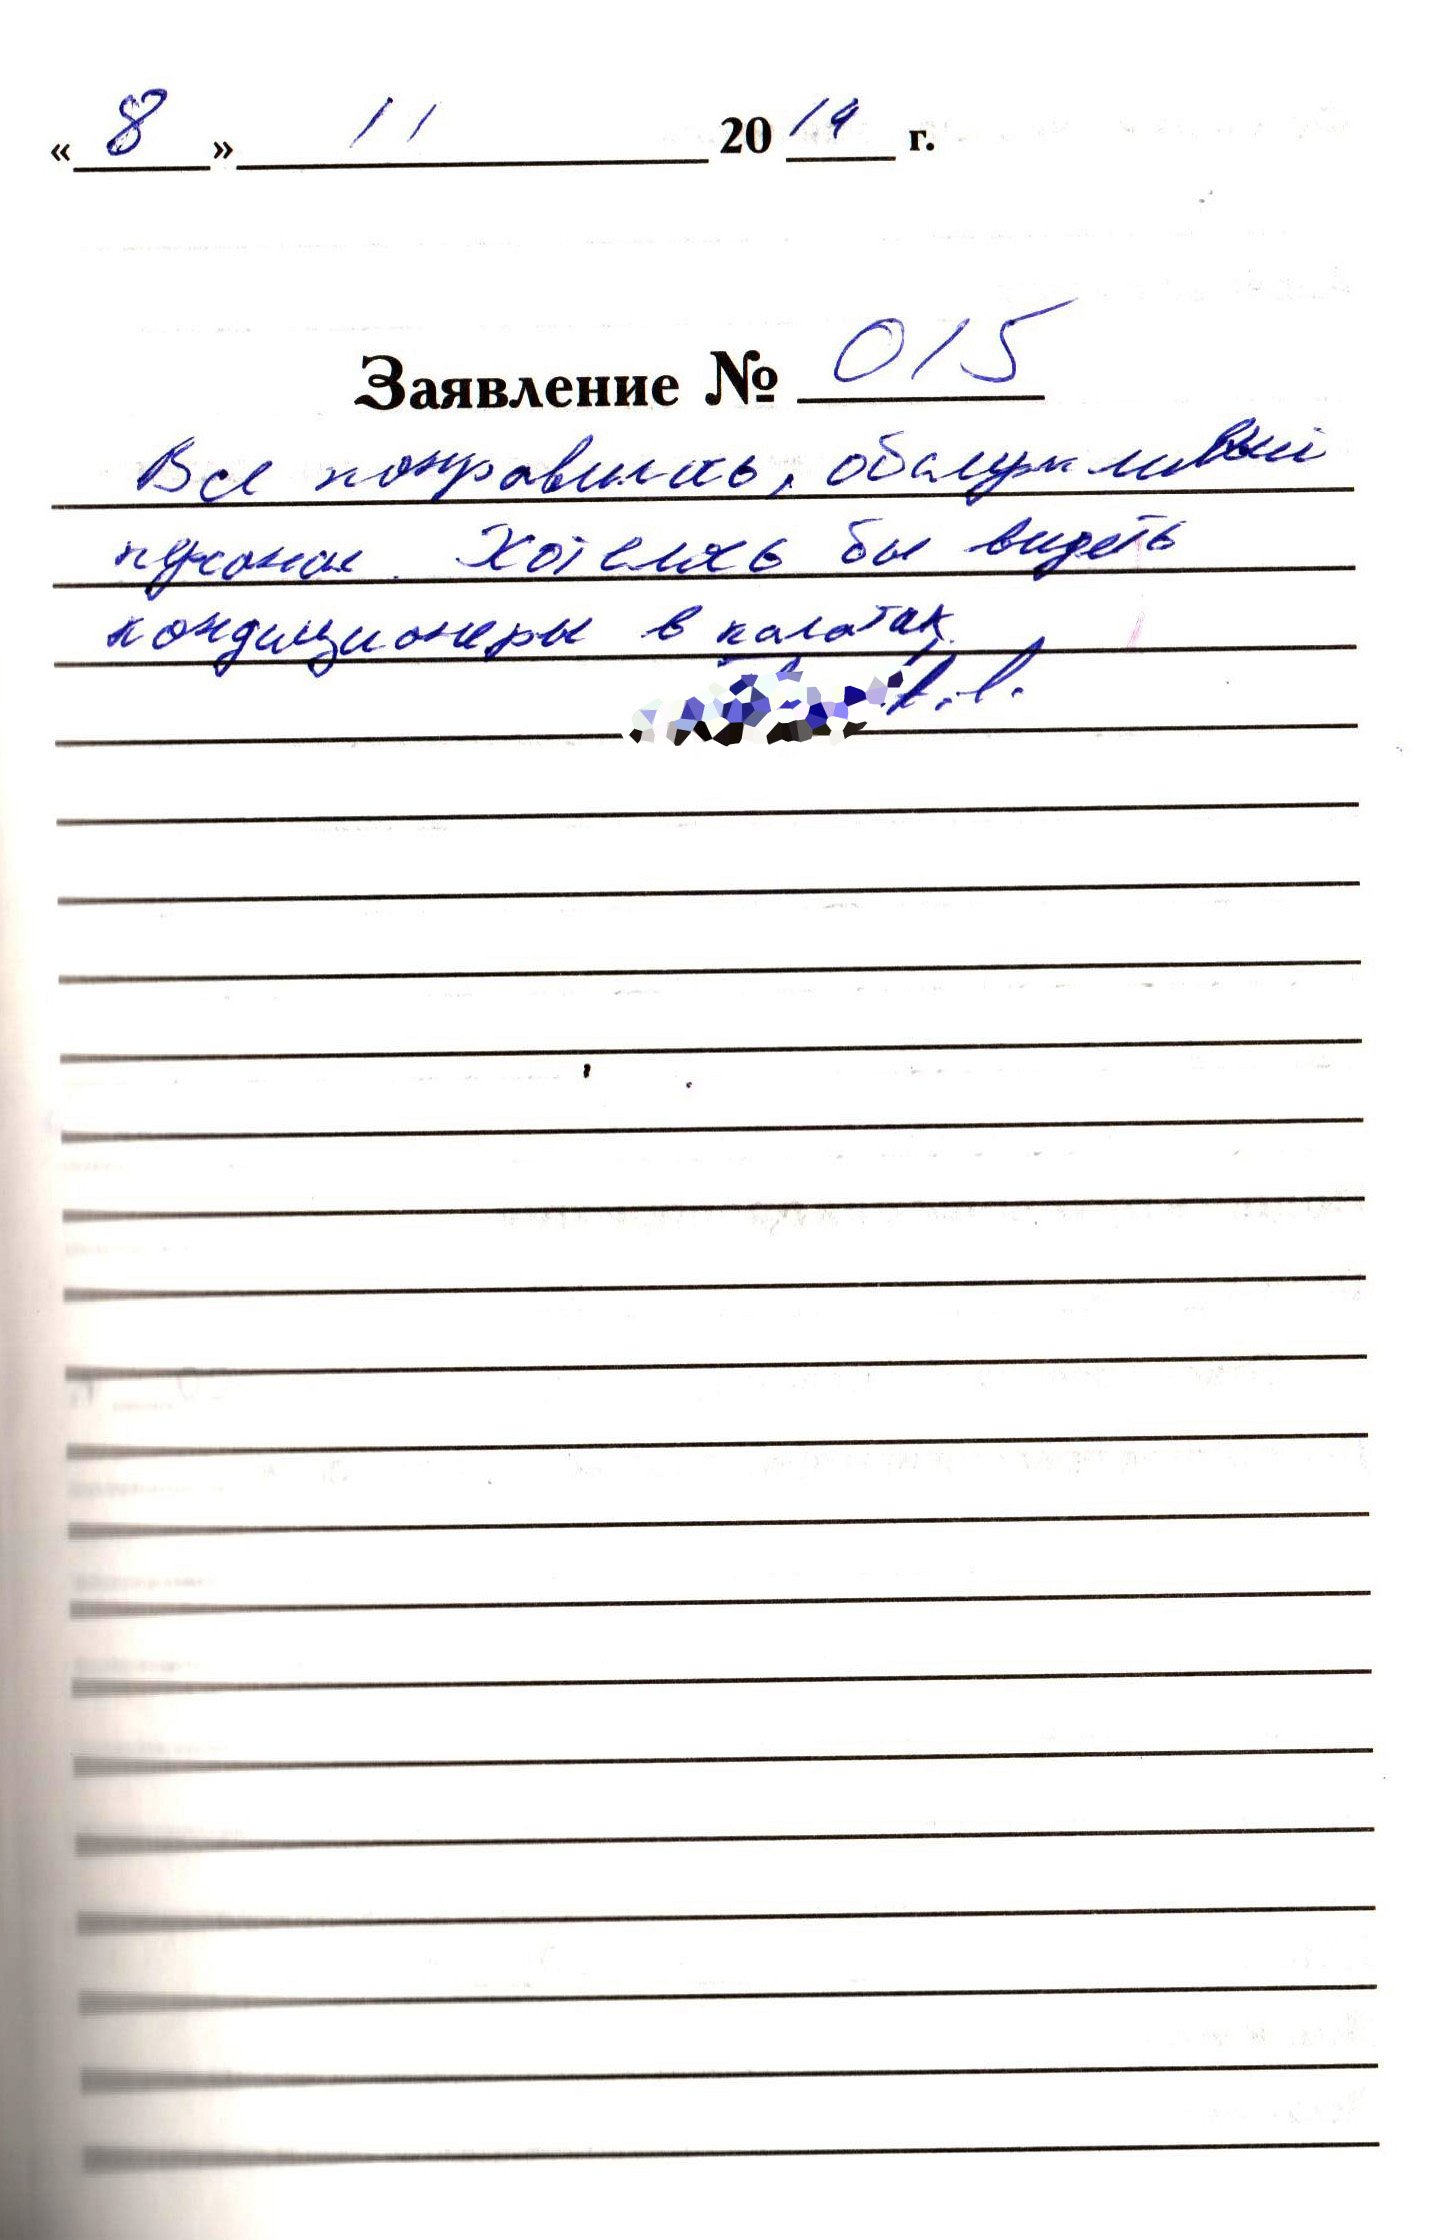 « 8 » 11 2019 г.
Заявление № 015
Все понравилось, обслуж
персонал. Хотелось бы видеть
кондиционеры в палатах